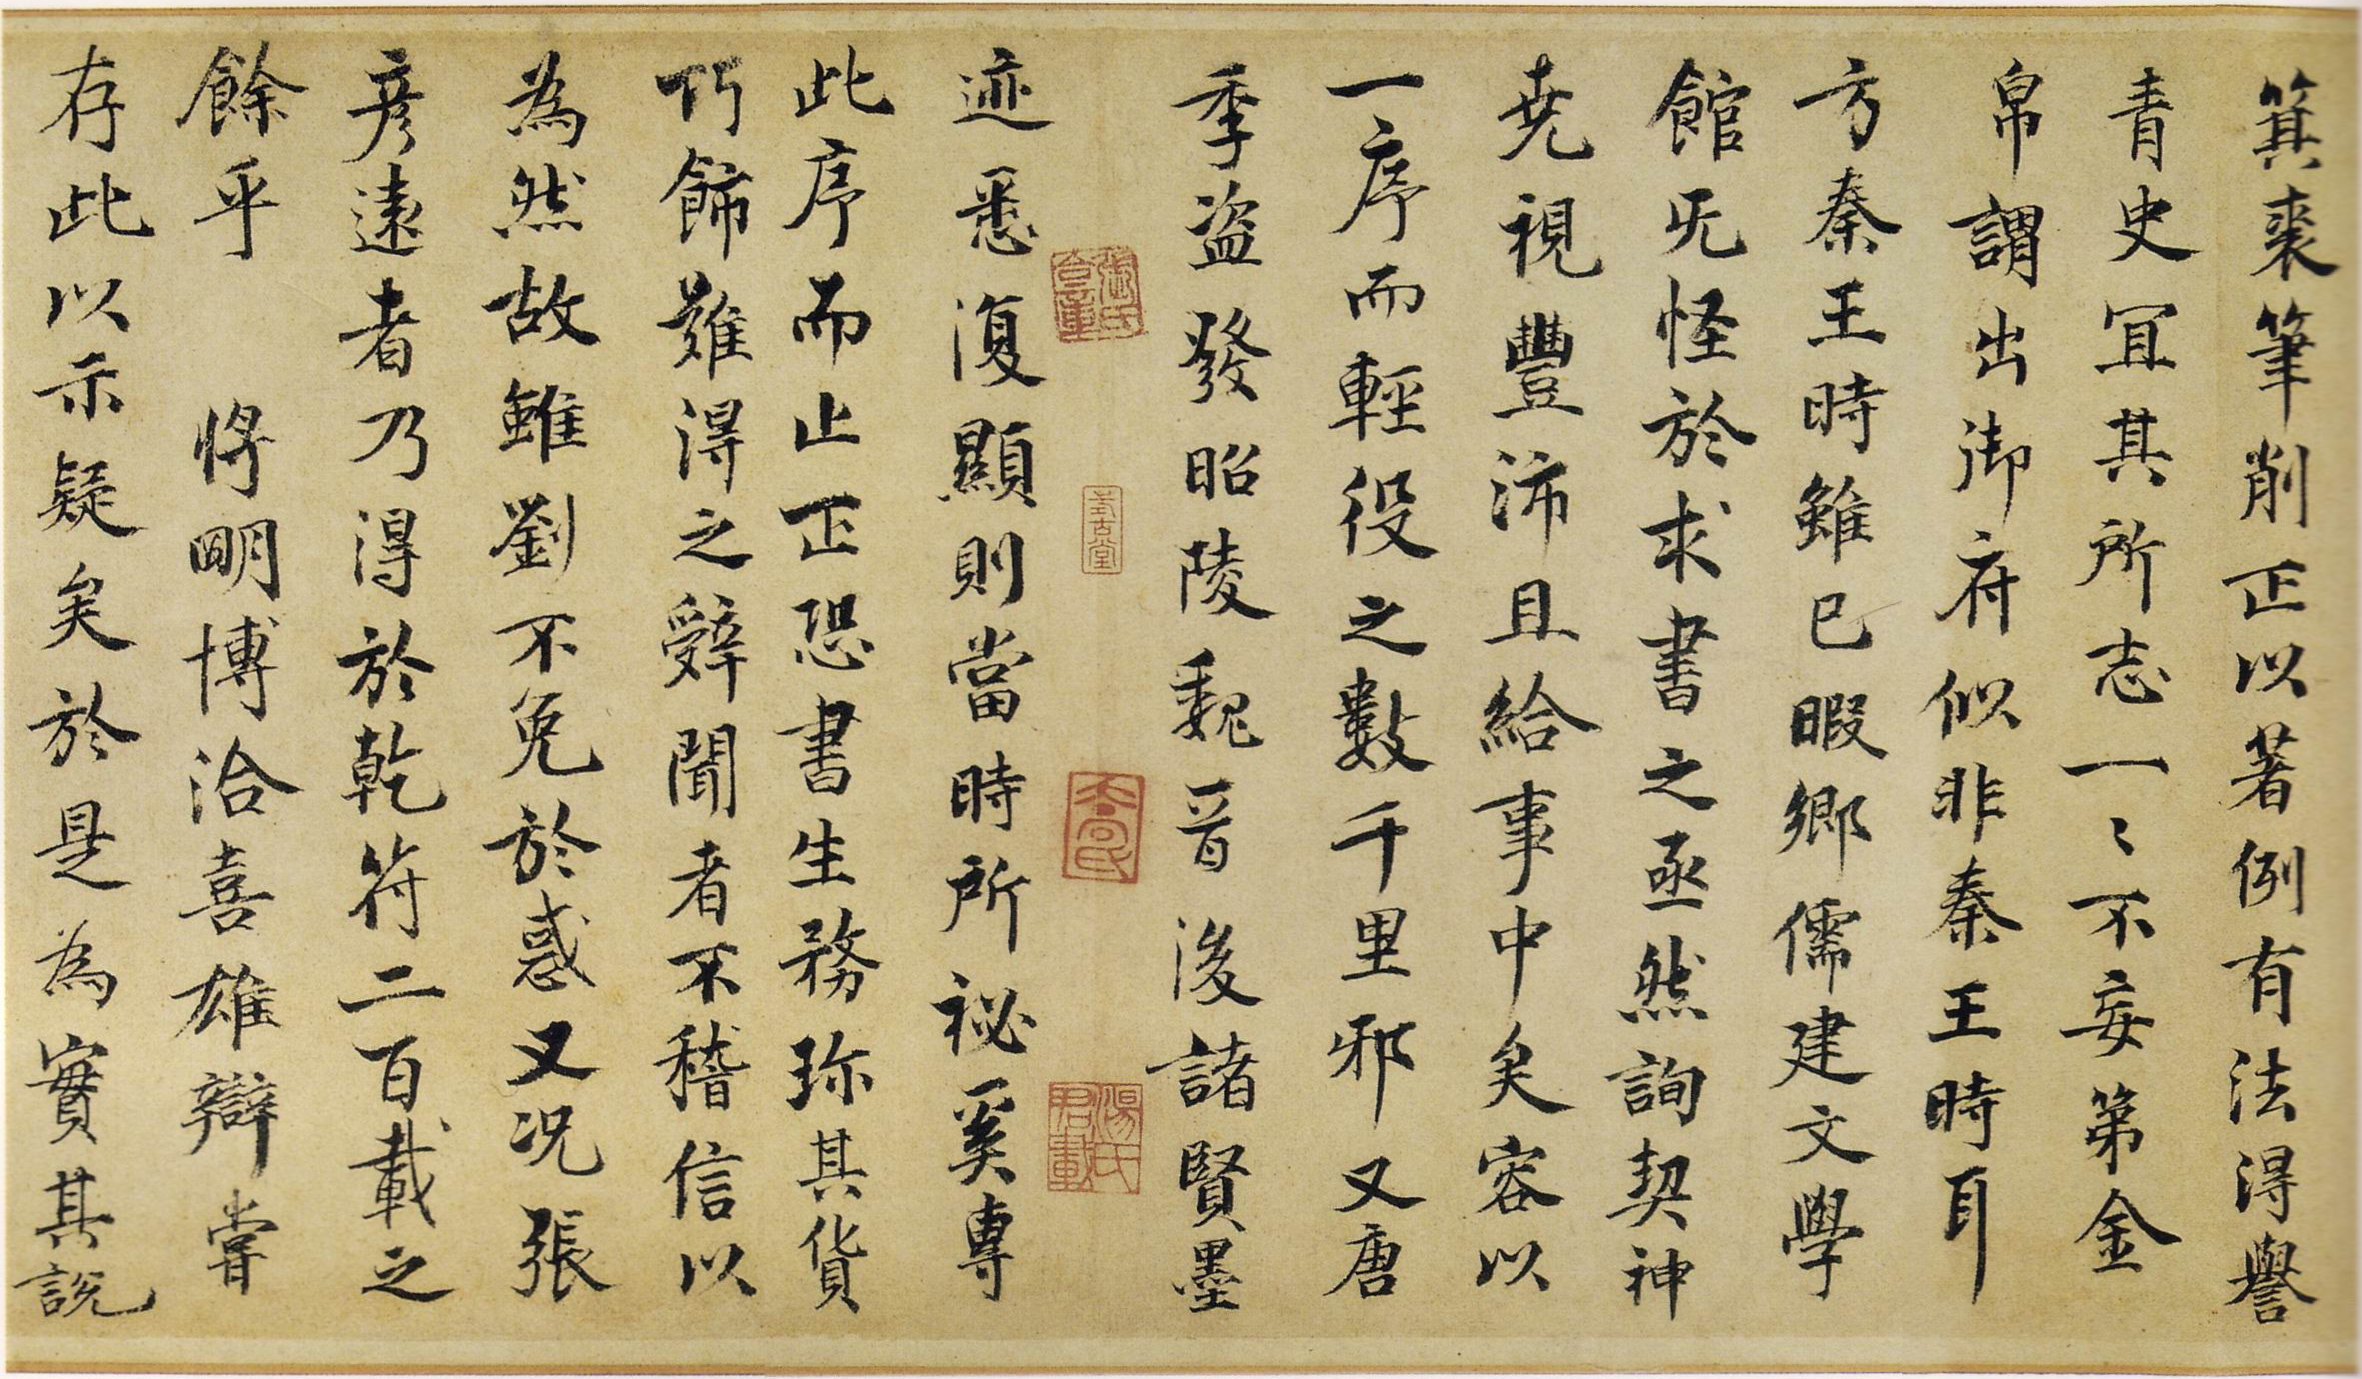 箕裘筆削正以著例有法得譽
青史冝其所志一〻不妄第金
帛謂出御府似非秦王時耳
方秦王時雖已暇鄉儒建文學
館旡怪於求書之亟然詢契神
尭視豐沛且給事中矣容以
一序而輕役之數千里邪又唐
季盜發昭陵魏晉後諸賢墨
迹悉復顯則當時所祕奚專
此序而止正恐書生務珎其貨
巧飾難得之辭聞者不稽信以
為然故雖劉不免於惑又況張
彥遠者乃得於乾符二百載之
餘乎 將明博洽喜雄辯嘗
存此以示疑矣於是為實其說
式古堂